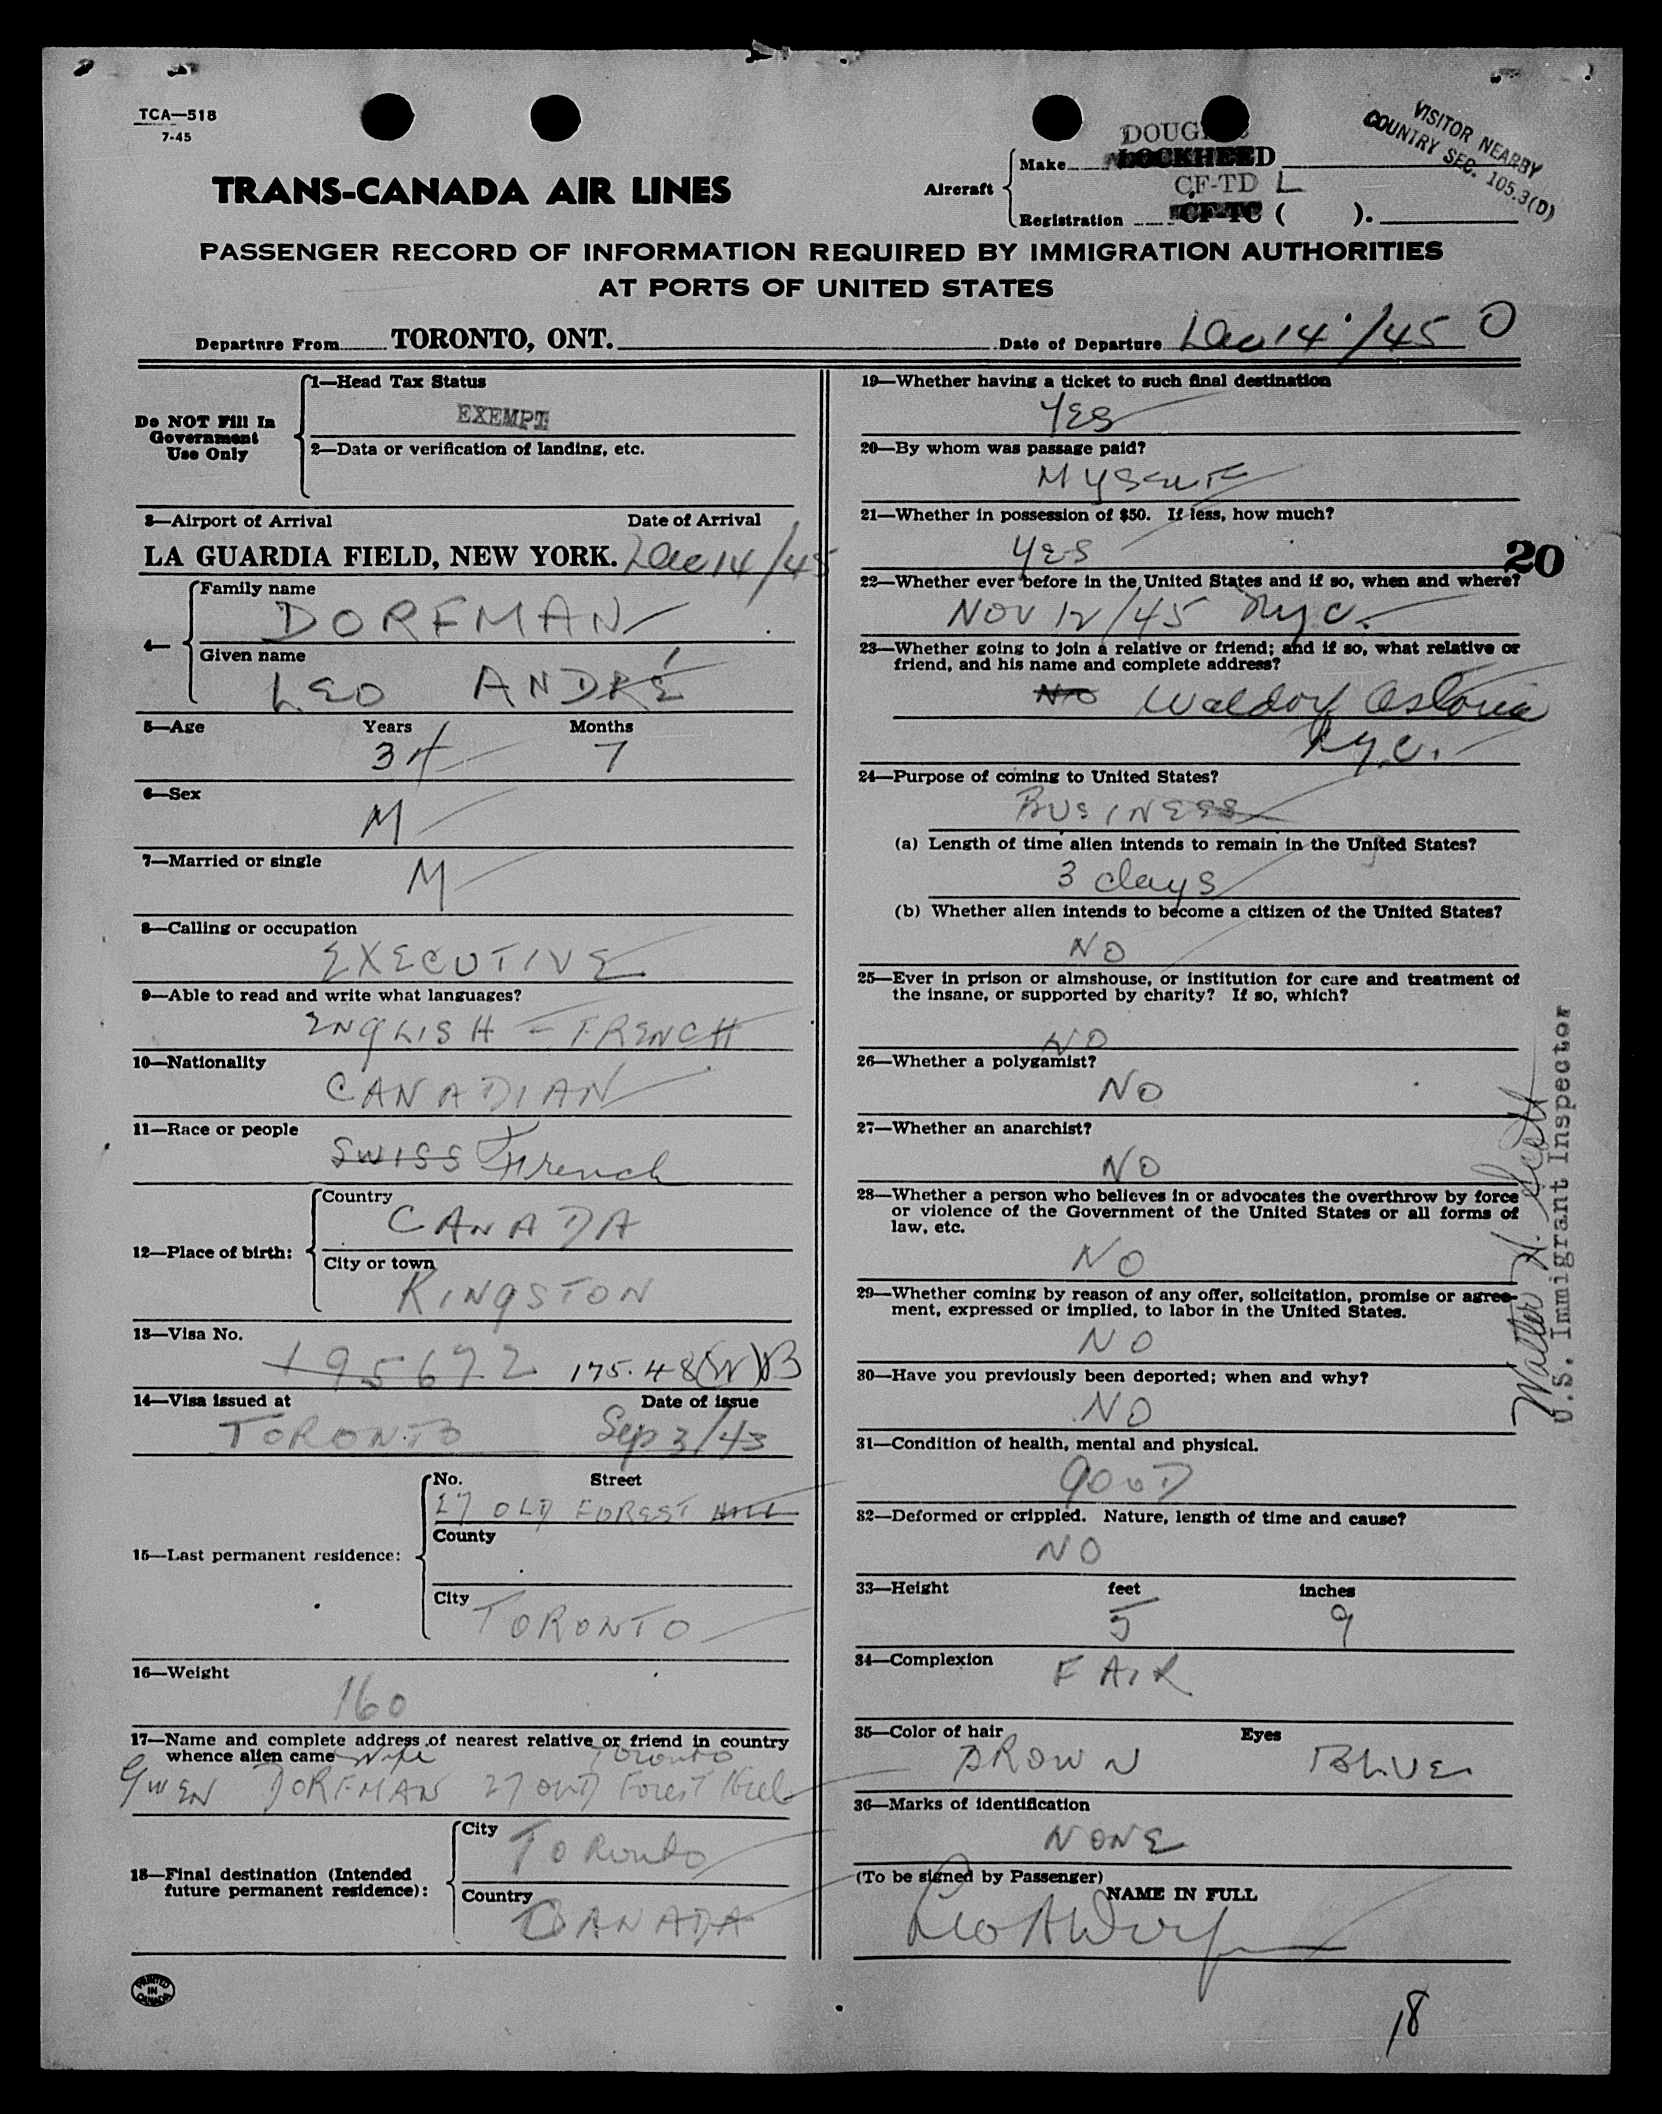 TCA—518
7-45
VISITOR NEARBY
COUNTRY SEC. 105.3(D)
TRANS-CANADA AIR LINES
Aircraft
Make
DOUGLAS
LOCKHEED
CF-TD L
Registration CF-TC ( ).
PASSENGER RECORD OF INFORMATION REQUIRED BY IMMIGRATION AUTHORITIES
AT PORTS OF UNITED STATES
Departure From TORONTO, ONT. Date of Departure Dec 14/45 0
Do NOT Fill In
Government
Use Only
1—Head Tax Status
EXEMPT
2—Data or verification of landing, etc.
3—Airport of Arrival Date of Arrival
LA GUARDIA FIELD, NEW YORK. Dec 14/45
4—
Family name
DORFMAN
Given name
LEO ANDRÉ
5—Age Years Months
34 7
6—Sex
M
7—Married or single
M
8—Calling or occupation
EXECUTIVE
9—Able to read and write what languages?
ENGLISH - FRENCH
10—Nationality
CANADIAN
11—Race or people
SWISS French
12—Place of birth:
Country
CANADA
City or town
KINGSTON
13—Visa No.
195672 175.48
14—Visa issued at Date of issue
TORONTO Sep 3/43
15—Last permanent residence:
No. Street
27 OLD FOREST HILL
County
City
TORONTO
16—Weight
160
17—Name and complete address of nearest relative or friend in country
whence alien came Wife Toronto
GWEN DORFMAN 27 OLD Forest Hill
18—Final destination (Intended
future permanent residence):
City
Toronto
Country
CANADA
PRINTED
IN
CANADA
19—Whether having a ticket to such final destination
YES
20—By whom was passage paid?
MYSELF
21—Whether in possession of $50. If less, how much?
YES
20
22—Whether ever before in the United States and if so, when and where?
NOV 12/45 Nyc.
23—Whether going to join a relative or friend; and if so, what relative or
friend, and his name and complete address?
NO Waldorf Astoria
Nyc.
24—Purpose of coming to United States?
BUSINESS
(a) Length of time alien intends to remain in the United States?
3 days
(b) Whether alien intends to become a citizen of the United States?
NO
25—Ever in prison or almshouse, or institution for care and treatment of
the insane, or supported by charity? If so, which?
NO
26—Whether a polygamist?
NO
27—Whether an anarchist?
NO
28—Whether a person who believes in or advocates the overthrow by force
or violence of the Government of the United States or all forms of
law, etc.
NO
29—Whether coming by reason of any offer, solicitation, promise or agree-
ment, expressed or implied, to labor in the United States.
NO
30—Have you previously been deported; when and why?
NO
31—Condition of health, mental and physical.
GOOD
32—Deformed or crippled. Nature, length of time and cause?
NO
33—Height feet inches
5 9
34—Complexion
FAIR
35—Color of hair Eyes
BROWN BLUE
36—Marks of identification
NONE
(To be signed by Passenger)
NAME IN FULL
Leo A Dorfman
Walter H.
U.S. Immigrant Inspector
18